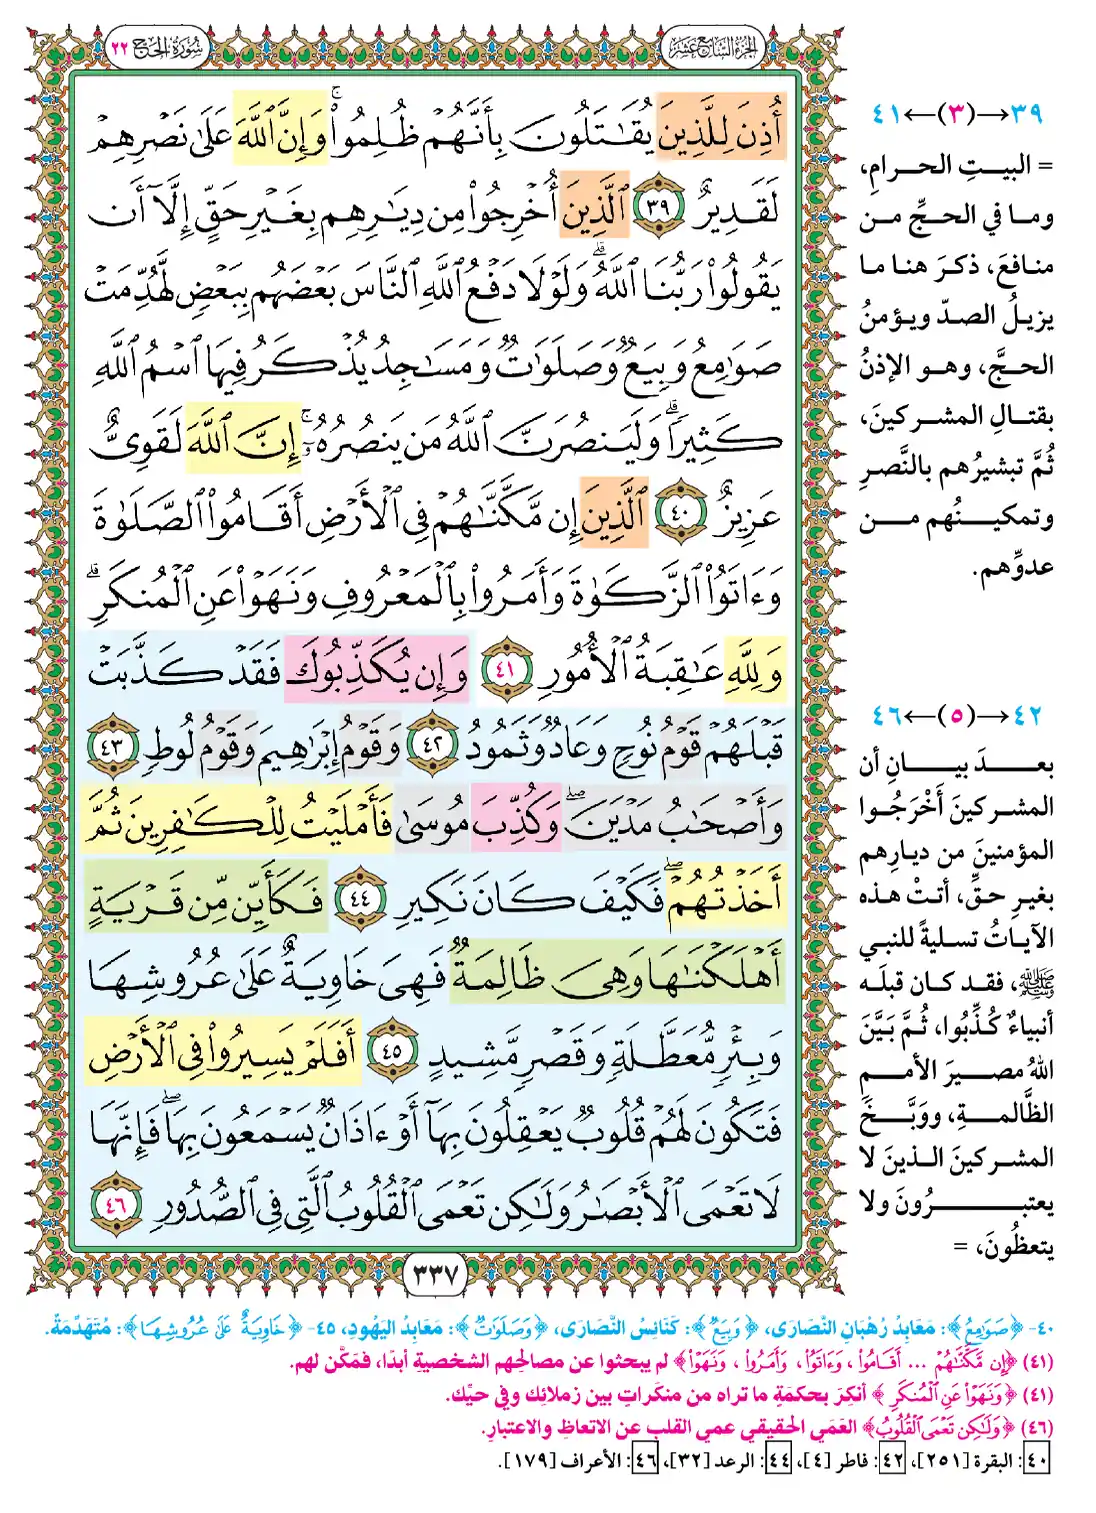 الجزء السابع عشر
سورة الحج ٢٢
أُذِنَ لِلَّذِينَ يُقَٰتَلُونَ بِأَنَّهُمْ ظُلِمُوا۟ ۚ وَإِنَّ ٱللَّهَ عَلَىٰ نَصْرِهِمْ
لَقَدِيرٌ ٣٩ ٱلَّذِينَ أُخْرِجُوا۟ مِن دِيَٰرِهِم بِغَيْرِ حَقٍّ إِلَّآ أَن
يَقُولُوا۟ رَبُّنَا ٱللَّهُ ۗ وَلَوْلَا دَفْعُ ٱللَّهِ ٱلنَّاسَ بَعْضَهُم بِبَعْضٍ لَّهُدِّمَتْ
صَوَٰمِعُ وَبِيَعٌ وَصَلَوَٰتٌ وَمَسَٰجِدُ يُذْكَرُ فِيهَا ٱسْمُ ٱللَّهِ
كَثِيرًا ۗ وَلَيَنصُرَنَّ ٱللَّهُ مَن يَنصُرُهُۥٓ ۚ إِنَّ ٱللَّهَ لَقَوِىٌّ
عَزِيزٌ ٤٠ ٱلَّذِينَ إِن مَّكَّنَّٰهُمْ فِى ٱلْأَرْضِ أَقَامُوا۟ ٱلصَّلَوٰةَ
وَءَاتَوُا۟ ٱلزَّكَوٰةَ وَأَمَرُوا۟ بِٱلْمَعْرُوفِ وَنَهَوْا۟ عَنِ ٱلْمُنكَرِ ۗ
وَلِلَّهِ عَٰقِبَةُ ٱلْأُمُورِ ٤١ وَإِن يُكَذِّبُوكَ فَقَدْ كَذَّبَتْ
قَبْلَهُمْ قَوْمُ نُوحٍ وَعَادٌ وَثَمُودُ ٤٢ وَقَوْمُ إِبْرَٰهِيمَ وَقَوْمُ لُوطٍ ٤٣
وَأَصْحَٰبُ مَدْيَنَ ۖ وَكُذِّبَ مُوسَىٰ فَأَمْلَيْتُ لِلْكَٰفِرِينَ ثُمَّ
أَخَذْتُهُمْ ۖ فَكَيْفَ كَانَ نَكِيرِ ٤٤ فَكَأَيِّن مِّن قَرْيَةٍ
أَهْلَكْنَٰهَا وَهِىَ ظَالِمَةٌ فَهِىَ خَاوِيَةٌ عَلَىٰ عُرُوشِهَا
وَبِئْرٍ مُّعَطَّلَةٍ وَقَصْرٍ مَّشِيدٍ ٤٥ أَفَلَمْ يَسِيرُوا۟ فِى ٱلْأَرْضِ
فَتَكُونَ لَهُمْ قُلُوبٌ يَعْقِلُونَ بِهَآ أَوْ ءَاذَانٌ يَسْمَعُونَ بِهَا ۖ فَإِنَّهَا
لَا تَعْمَى ٱلْأَبْصَٰرُ وَلَٰكِن تَعْمَى ٱلْقُلُوبُ ٱلَّتِى فِى ٱلصُّدُورِ ٤٦
٣٣٧
٣٩→(٣)←٤١
= البيتِ الحرامِ،
وما في الحجِّ من
منافعَ، ذكرَ هنا ما
يزيلُ الصدّ ويؤمنُ
الحجَّ، وهو الإذنُ
بقتالِ المشركينَ،
ثُمَّ تبشيرُهم بالنَّصرِ
وتمكينُهم من
عدوِّهم.
٤٢→(٥)←٤٦
بعدَ بيانِ أن
المشركينَ أَخْرَجُوا
المؤمنينَ من ديارِهم
بغيرِ حقٍّ، أتتْ هذه
الآياتُ تسليةً للنبي
ﷺ، فقد كان قبلَه
أنبياءٌ كُذِّبُوا، ثُمَّ بَيَّنَ
اللهُ مصيرَ الأممِ
الظَّالمةِ، ووَبَّخَ
المشركينَ الذينَ لا
يعتبرُونَ ولا
يتعظُونَ، =
٤٠- ﴿صَوَٰمِعُ﴾: مَعَابِدُ رُهْبَانِ النَّصَارَى، ﴿وَبِيَعٌ﴾: كَنَائِسُ النَّصَارَى، ﴿وَصَلَوَٰتٌ﴾: مَعَابِدُ اليَهُودِ، ٤٥- ﴿خَاوِيَةٌ عَلَىٰ عُرُوشِهَا﴾: مُتَهَدِّمَةٌ.
(٤١) ﴿إِن مَّكَّنَّٰهُمْ ... أَقَامُوا۟ ، وَءَاتَوُا۟ ، وَأَمَرُوا۟ ، وَنَهَوْا۟﴾ لم يبحثوا عن مصالحهم الشخصيةِ أبدًا، فمَكَّن لهم.
(٤١) ﴿وَنَهَوْا۟ عَنِ ٱلْمُنكَرِ﴾ أنكِرَ بحكمةٍ ما تراه من منكَراتٍ بين زملائِك وفي حيِّك.
(٤٦) ﴿وَلَٰكِن تَعْمَى ٱلْقُلُوبُ﴾ العَمَى الحقيقي عمي القلبِ عن الاتعاظِ والاعتبارِ.
٤٠: البقرة [٢٥١]، ٤٢: فاطر [٤]، ٤٤: الرعد [٣٢]، ٤٦: الأعراف [١٧٩].